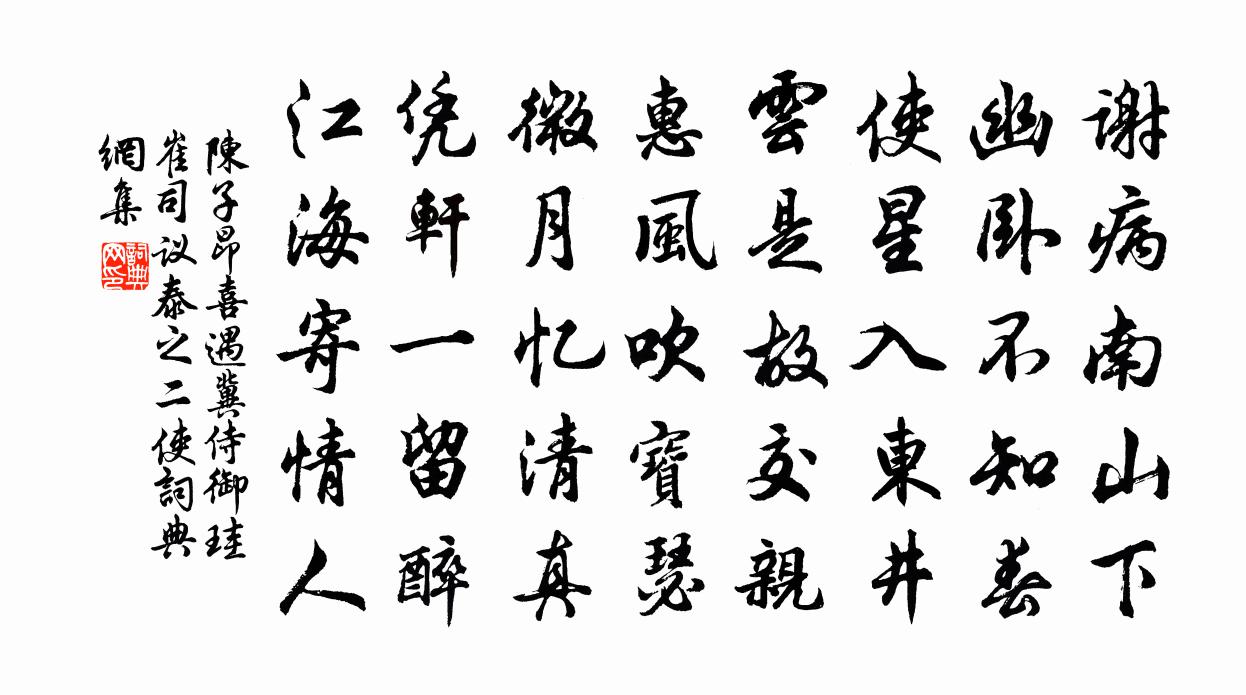 谢病南山下
幽卧不知春
使星入東井
雲是故交親
惠風吹寶瑟
微月忆清真
凭軒一留醉
江海寄情人
陳子昂喜遇冀侍御珪
崔司议泰之二使詞典
網集
詞典
网印